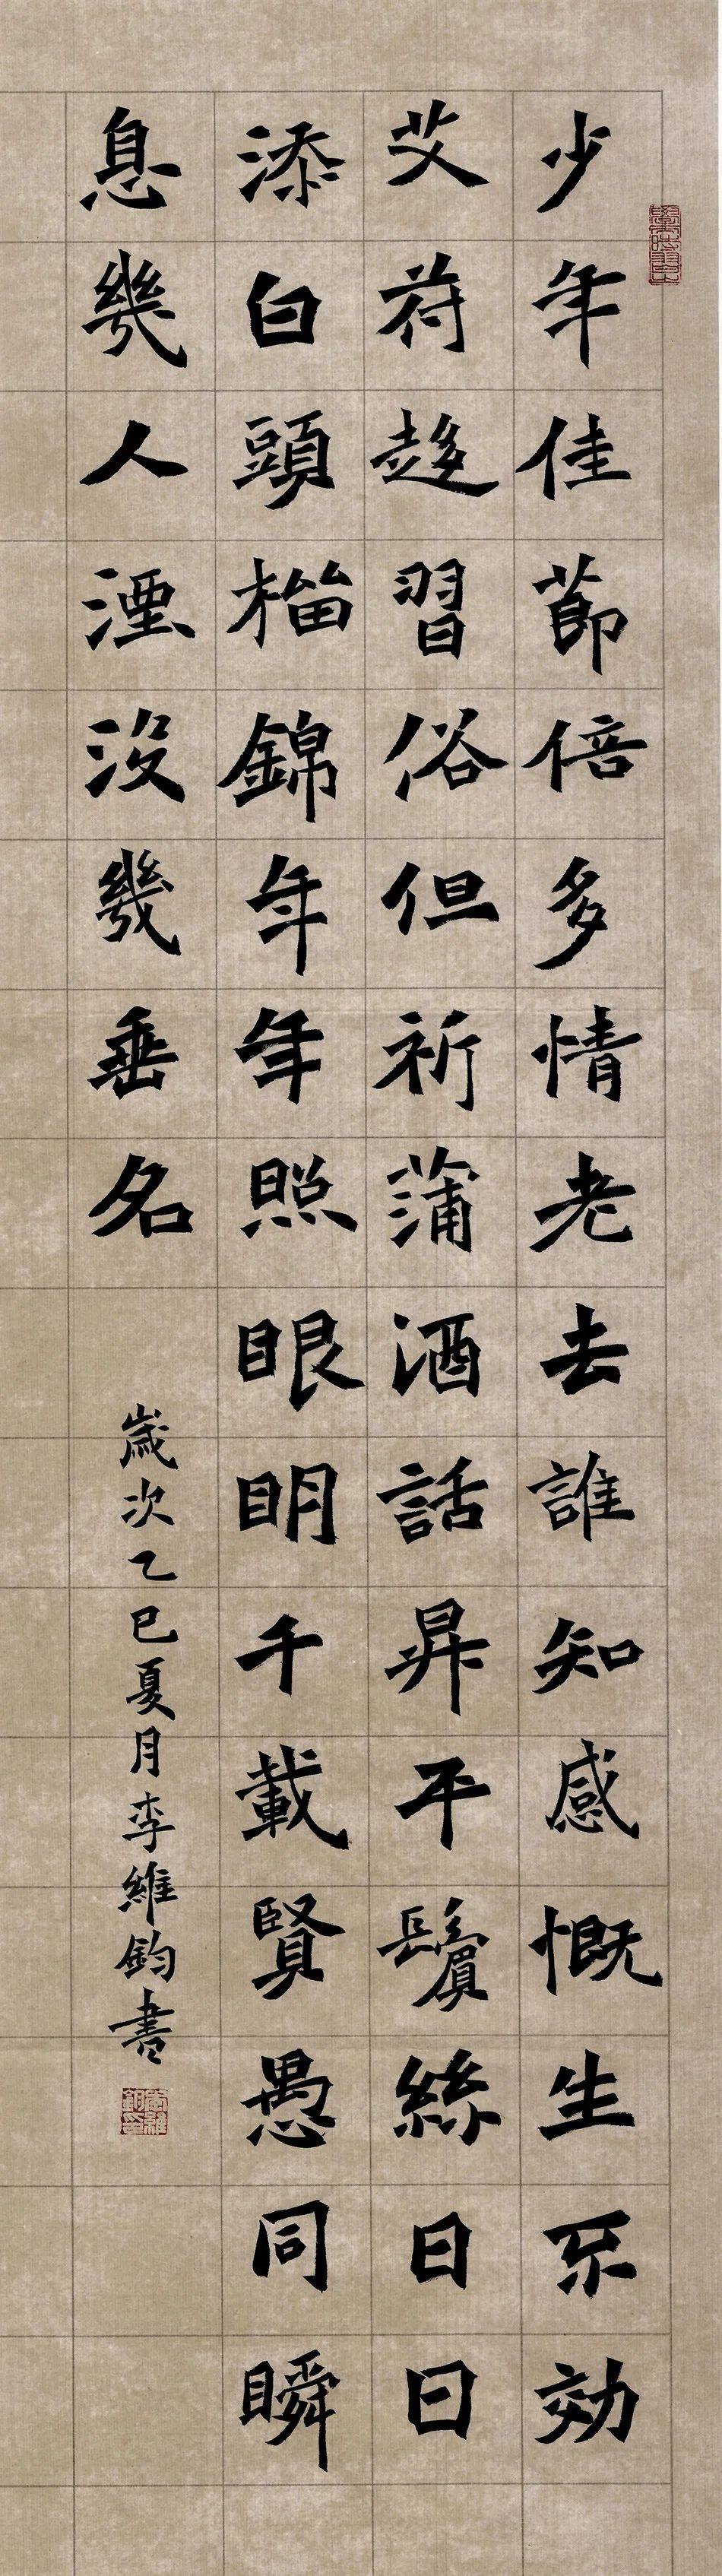 少年佳莭倍多情老去誰知感慨生不効
艾符趍習俗但祈蒲酒話昇平鬢絲日日
添白頭榴錦年年照眼明千載賢愚同瞬
息幾人湮沒幾垂名
歲次乙巳夏月李維鈞書
李維鈞印